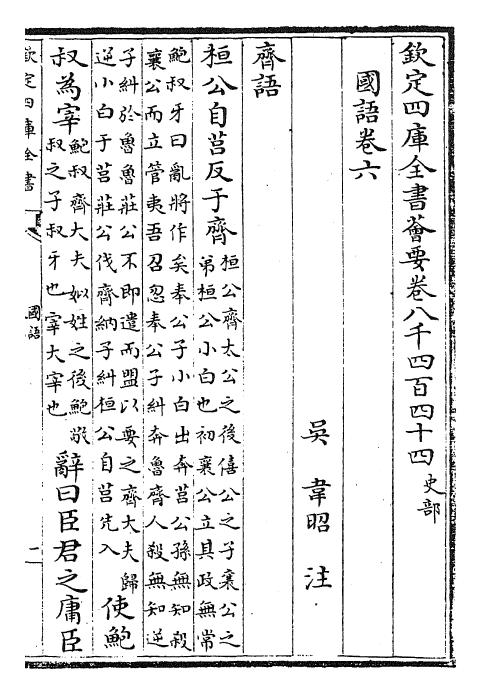 欽定四庫全書薈要卷八千四百四十四史部
國語卷六
吳韋昭注
齊語
桓公自莒反于齊桓公齊太公之後僖公之子襄公之
弟桓公小白也初襄公立其政無常
鮑叔牙曰亂將作矣奉公子小白出奔莒公孫無知殺
襄公而立管夷吾召忽奉公子糾奔魯齊人殺無知逆
子糾於魯魯莊公不即遣而盟以要之齊大夫歸
逆小白于莒莊公伐齊納子糾桓公自莒先入使鮑
叔為宰鮑叔齊大夫姒姓之後鮑敬
叔之子叔牙也宰大宰也辭曰臣君之庸臣
欽定四庫全書
國語
一